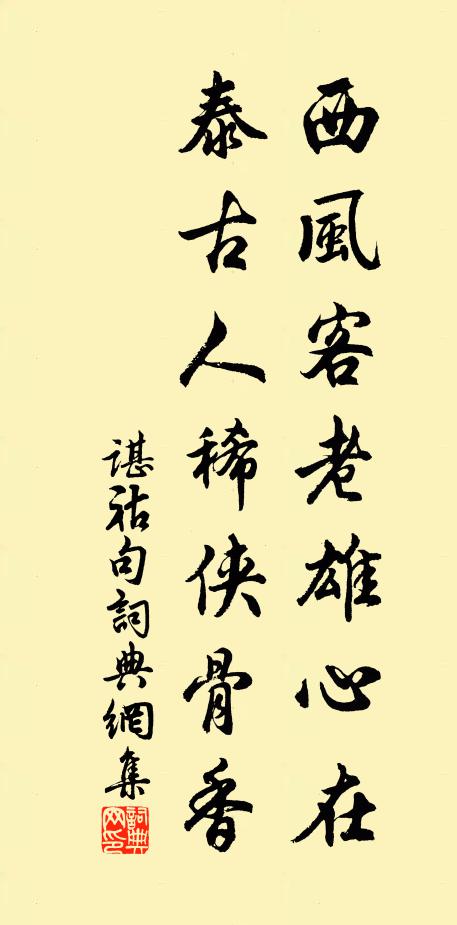 西風客老雄心在
泰古人稀俠骨香
谌祜句詞典網集
詞典網印